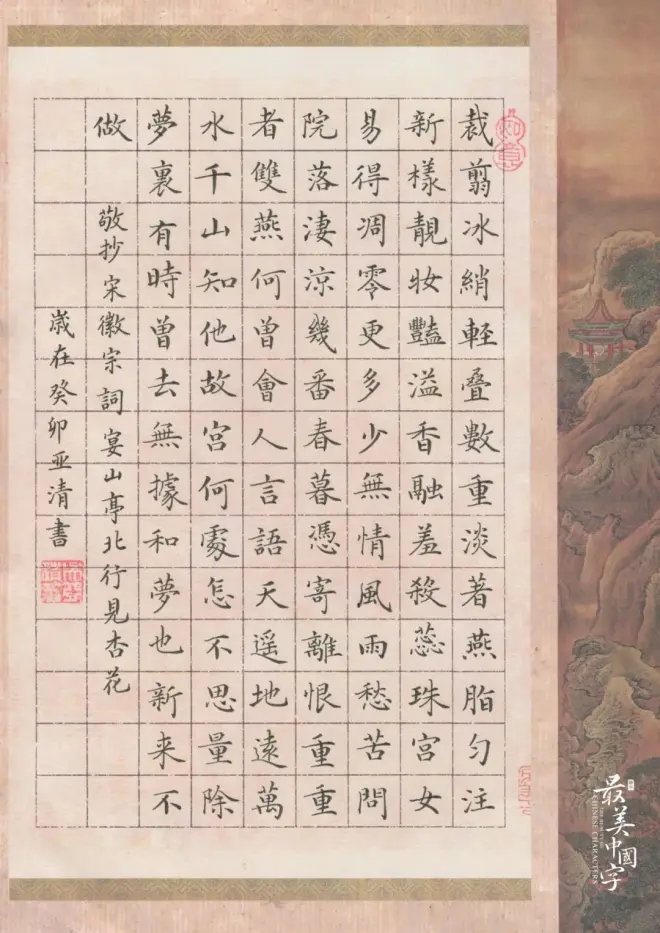 裁翦冰綃輕疊數重淡著燕脂勻注
新樣靚妝豔溢香融羞殺蕊珠宮女
易得凋零更多少無情風雨愁苦問
院落淒涼幾番春暮憑寄離恨重重
者雙燕何曾會人言語天遥地遠萬
水千山知他故宮何處怎不思量除
夢裏有時曾去無據和夢也新来不
做
敬抄宋徽宗詞宴山亭北行見杏花
歳在癸卯亚清書
最美中國字
CHINESE CHARACTERS